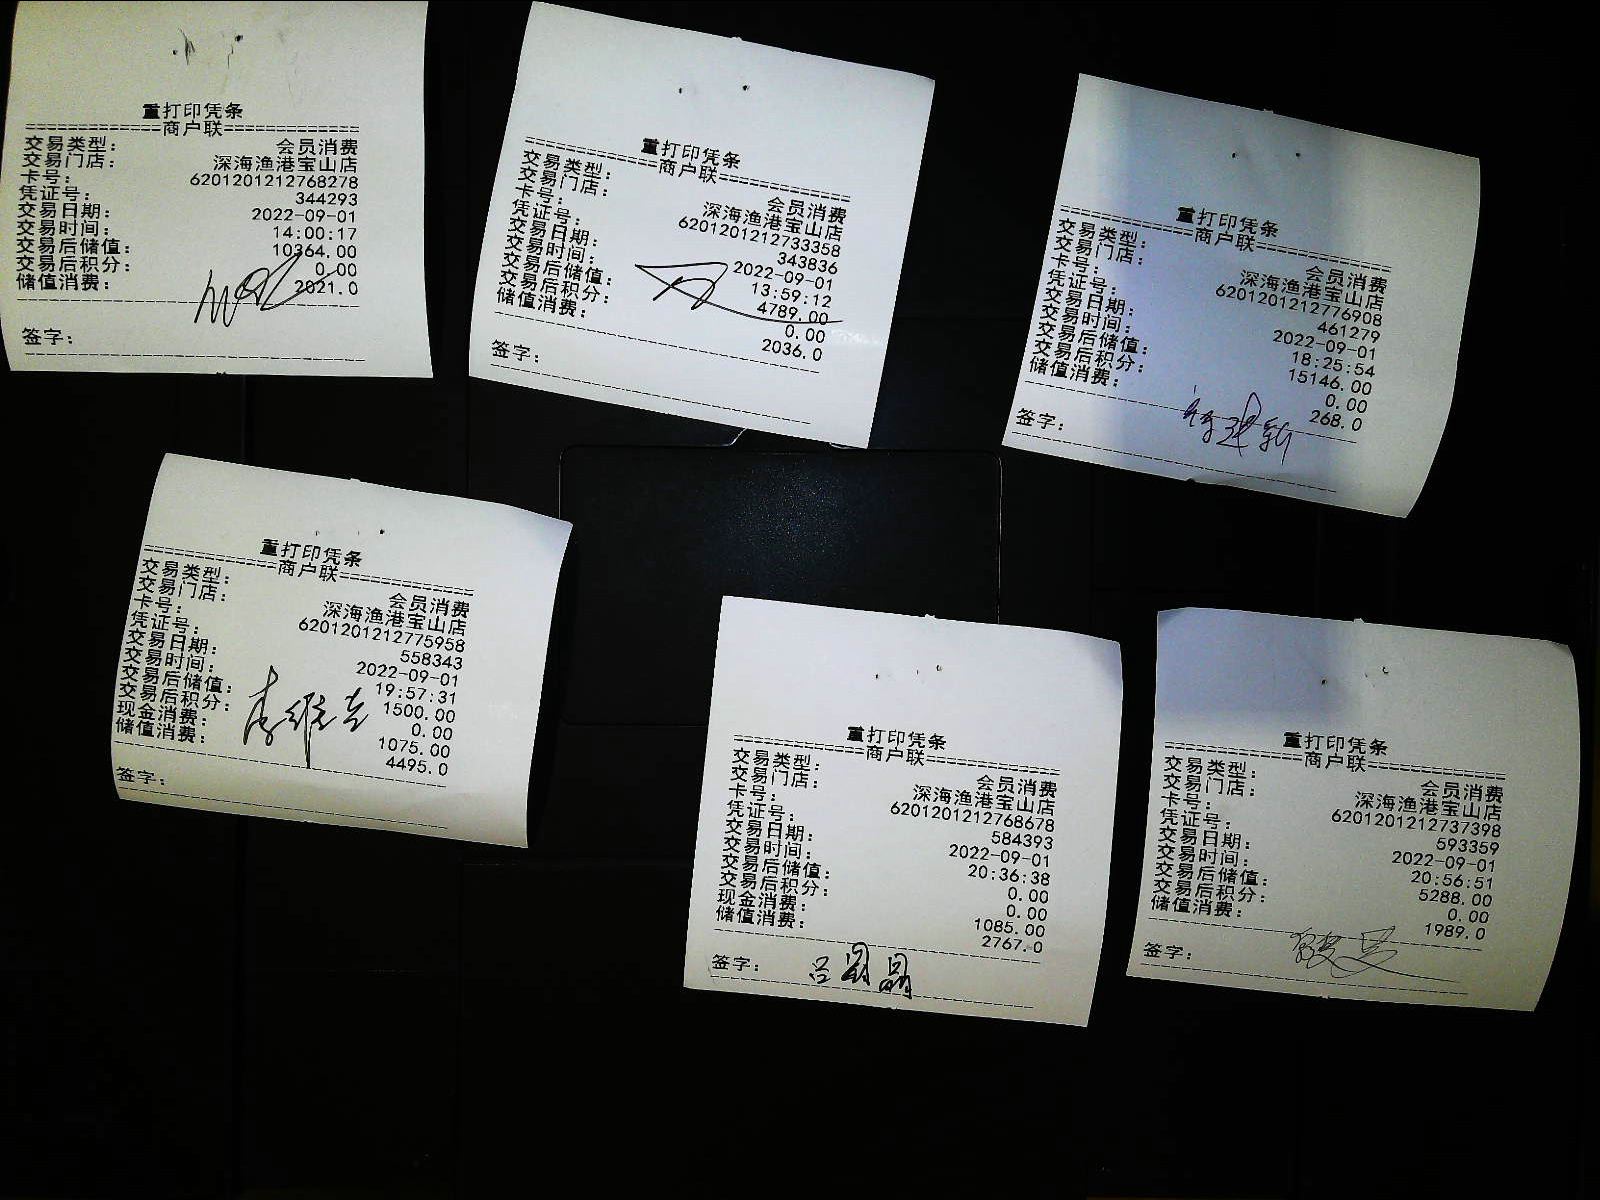 重打印凭条
==============商户联==============
交易类型： 会员消费
交易门店： 深海渔港宝山店
卡号： 6201201212768278
凭证号： 344293
交易日期： 2022-09-01
交易时间： 14:00:17
交易后储值： 10364.00
交易后积分： 0.00
储值消费： 2021.0
签字：
重打印凭条
==============商户联==============
交易类型： 会员消费
交易门店： 深海渔港宝山店
卡号： 6201201212733358
凭证号： 343836
交易日期： 2022-09-01
交易时间： 13:59:12
交易后储值： 4789.00
交易后积分： 0.00
储值消费： 2036.0
签字：
重打印凭条
==============商户联==============
交易类型： 会员消费
交易门店： 深海渔港宝山店
卡号： 6201201212776908
凭证号： 461279
交易日期： 2022-09-01
交易时间： 18:25:54
交易后储值： 15146.00
交易后积分： 0.00
储值消费： 268.0
签字：
重打印凭条
==============商户联==============
交易类型： 会员消费
交易门店： 深海渔港宝山店
卡号： 6201201212775958
凭证号： 558343
交易日期： 2022-09-01
交易时间： 19:57:31
交易后储值： 1500.00
交易后积分： 0.00
现金消费： 1075.00
储值消费： 4495.0
签字：
重打印凭条
==============商户联==============
交易类型： 会员消费
交易门店： 深海渔港宝山店
卡号： 6201201212768678
凭证号： 584393
交易日期： 2022-09-01
交易时间： 20:36:38
交易后储值： 0.00
交易后积分： 0.00
现金消费： 1085.00
储值消费： 2767.0
签字：
重打印凭条
==============商户联==============
交易类型： 会员消费
交易门店： 深海渔港宝山店
卡号： 6201201212737398
凭证号： 593359
交易日期： 2022-09-01
交易时间： 20:56:51
交易后储值： 5288.00
交易后积分： 0.00
储值消费： 1989.0
签字：